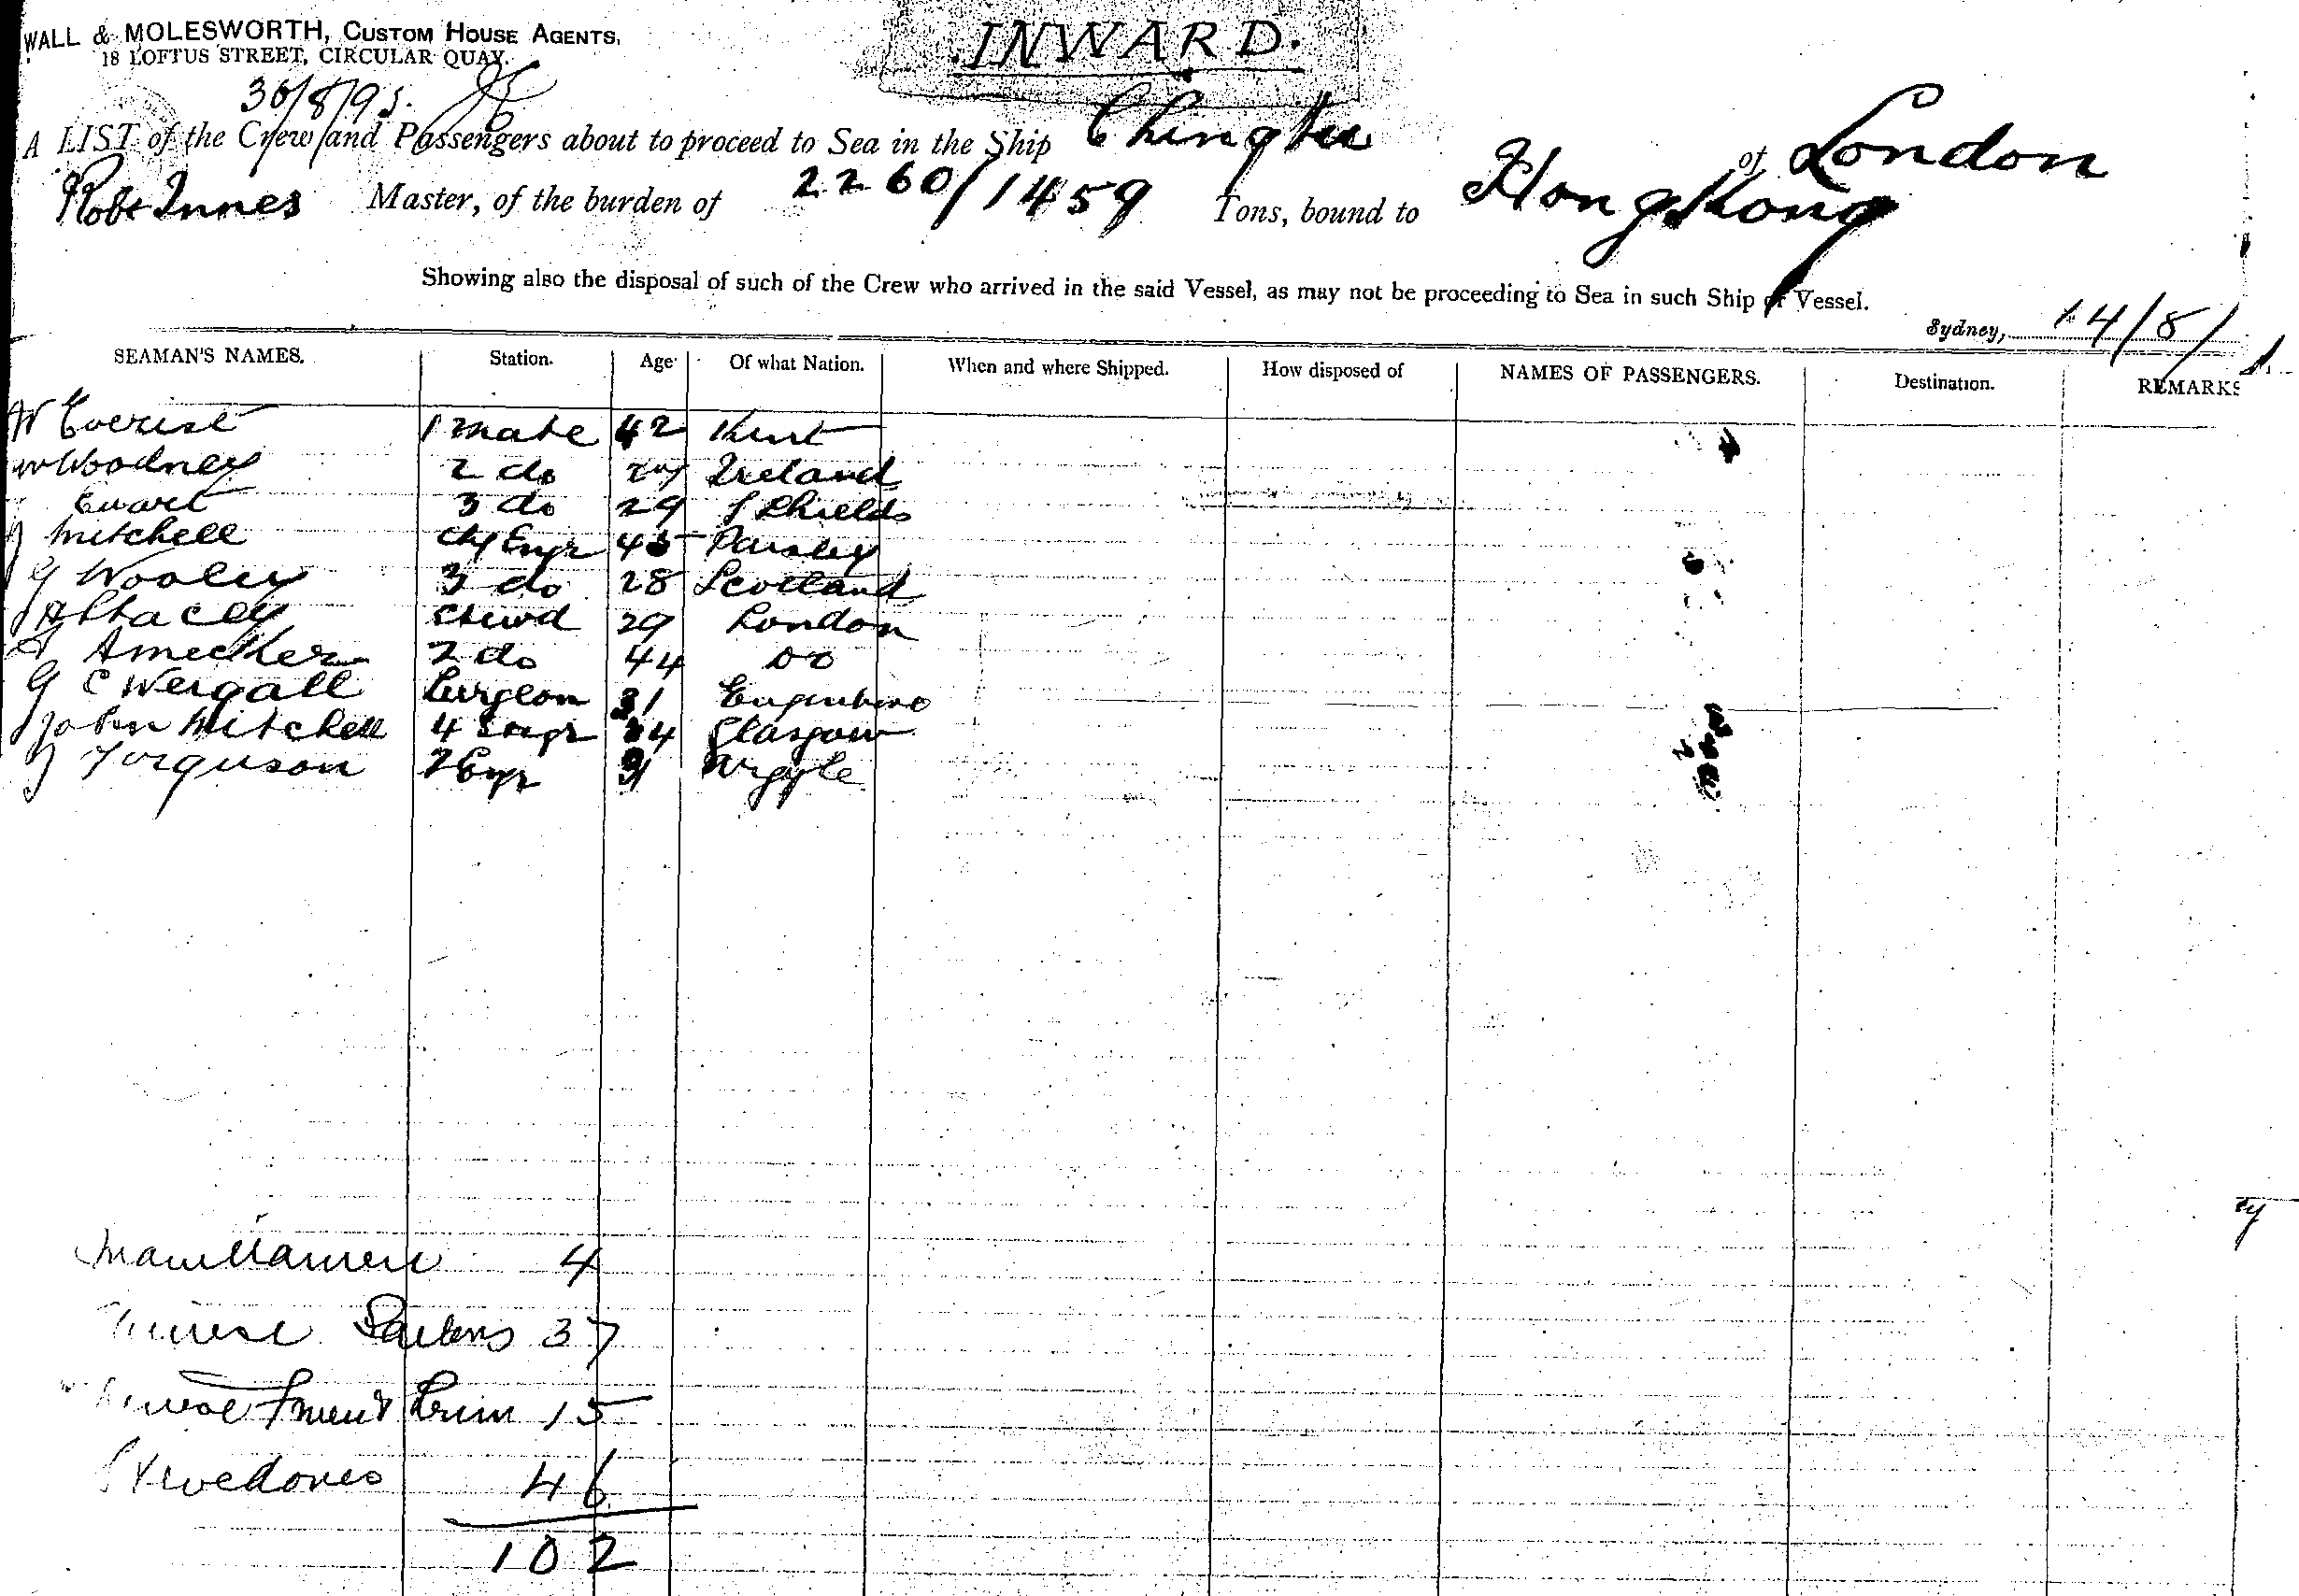 WALL & MOLESWORTH, CUSTOM HOUSE AGENTS,
18 LOFTUS STREET, CIRCULAR QUAY.
INWARD.
30/8/95.
A LIST of the Crew and Passengers about to proceed to Sea in the Ship Chingtu of London
Robt Innes Master, of the burden of 2260/1459 Tons, bound to Hong Kong
Showing also the disposal of such of the Crew who arrived in the said Vessel, as may not be proceeding to Sea in such Ship or Vessel.
Sydney, 14/8/
SEAMAN'S NAMES. Station. Age Of what Nation. When and where Shipped. How disposed of NAMES OF PASSENGERS. Destination. REMARKS
W Everist 1 mate 42 Kent
Woodney 2 do Ireland
Ewart 3 do 29 S Shields
J Mitchell Chf Engr 45 Paisley
G Wooley 3 do 28 Scotland
Stewd 29 London
2 do 44 do
G C Wergall Surgeon 31
John Mitchell 4 Engr 34 Glasgow
J Forguson 2 Engr 31 Argyle
4
Sailors 37
15
46
102